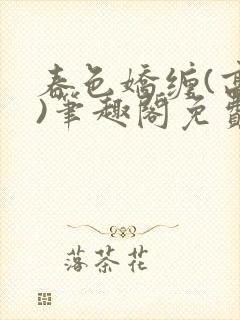 春色嬌纏(
)筆趣閣免費
落茶花